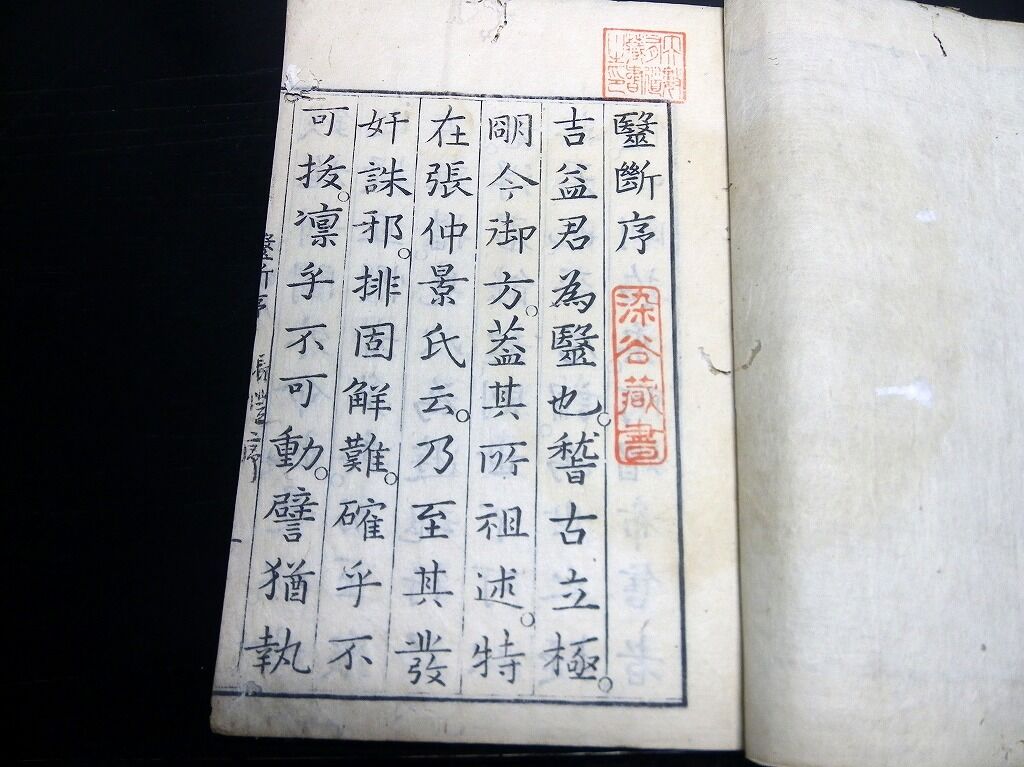 醫斷序
吉益君為醫也。稽古立極。
明今御方。葢其所祖述。特
在張仲景氏云。乃至其發
奸誅邪。排固解難。確乎不
可拔。凛乎不可動。譬猶執
染谷藏書
醫斷序